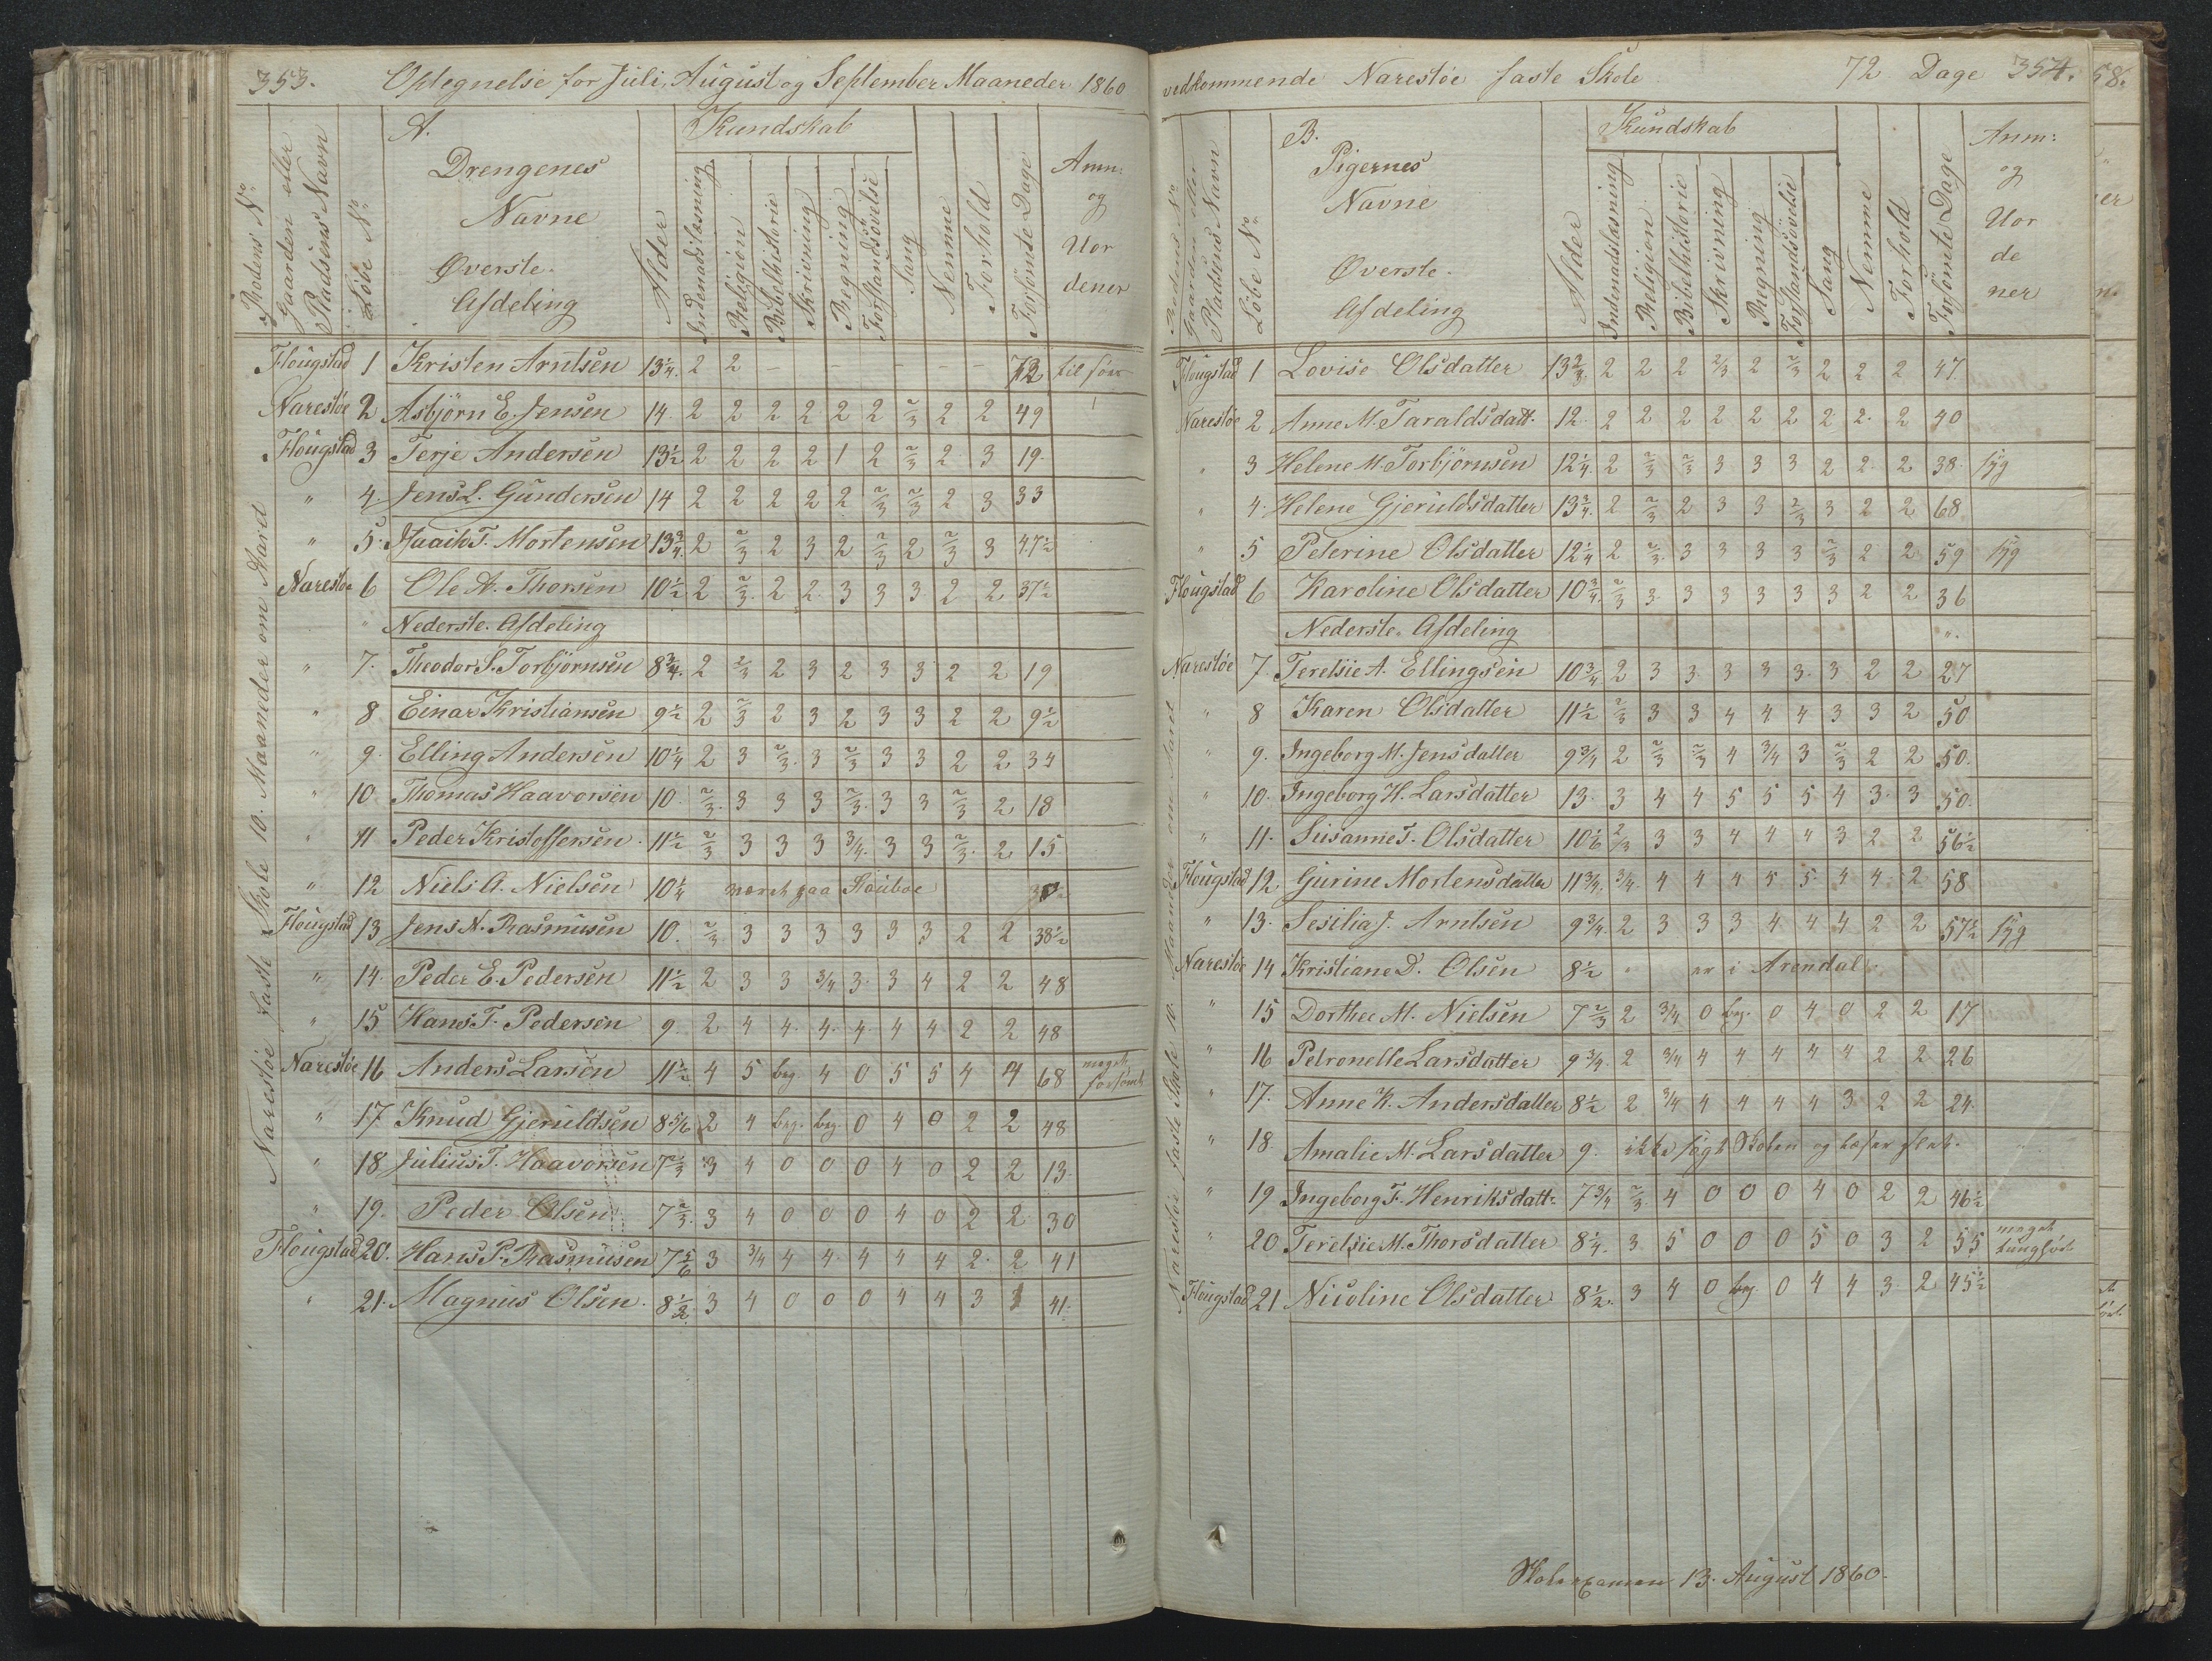 353. Optegnelse for Juli, August og September Maaneder 1860
Skolens No
Gaardens eller
Pladsens Navn
Löbe No
A.
Drengenes
Navne
Øverste.
Afdeling
Alder
Kundskab
Indenadslæsning
Religion
Bibelhistorie
Skrivning
Regning
Forstandsövelse
Sang
Nemme
Forhold
Forsömte Dage
Anm:
og
Uor
dener
Narestöe faste Skole 10. Maaneder om Aard
Flougstad 1 Kristen Arntsen 13¼. 2 2 – – – – – 72 til söes
Narestöe 2 Asbjörn E. Jensen 14. 2 2 2 2 2 2 2/3 2 2 49
Flougstad 3 Terje Andersen 13½ 2 2 2 2 1 2 2/3 2 3 19.
" 4. Jens L. Gundersen 14 2 2 2 2 2 2/3 2/3 2 3 33
" 5. Isaak T. Mortensen 13¾ 2 2/3 2 3 2 2/3 2 2/3 3 47½
Narestöe 6 Ole A. Thorsen 10½ 2 2/3 2 2 3 3 3 2 2 37½
" Nederste. Afdeling
" 7. Theodor S. Torbjörnsen 8¾. 2 2/3 2 3 2 3 3 2 2 19
" 8 Einar Kristiansen 9½ 2 2/3 2 3 2 3 3 2 2 9½
" 9. Elling Andersen 10¼ 2 3 2/3. 3 2/3 3 3 2 2 34
" 10 Thomas Haavorsen 10. 2/3. 3 3 3 2/3. 3 3 2/3 2 18
" 11 Peder Kristoffersen. 11½ 2/3 3 3 3 3/4. 3 3 2/3. 2 15
" 12 Niels A. Nielsen 10¼ været paa
Flougstad 13 Jens N. Rasmusen 10. 2/3 3 3 3 3 3 3 2 2 38½
" 14. Peder E. Pedersen 11½ 2 3 3 3/4 3. 3 4 2 2 48
" 15 Hans T. Pedersen 9. 2 4 4. 4. 4. 4 4. 2 2 48
Narestöe 16 Anders Larsen 11½ 4 5 beg. 4 0 5 5 4 4 68 meget forsömt
" 17 Knud Gjeruldsen 8 5/6 2 4 beg. beg. 0 4 0 2 2 48
" 18 Julius T. Haavorsen 7 2/3 3 4 0 0 0 4 0 2 2 13.
" 19. Peder Olsen 7 2/3. 3 4 0 0 0 4 0 2 2 30
Flougstad 20. Hans P. Rasmusen 7 5/6 3 3/4 4 4. 4 4 4 2. 2 41
" 21. Magnus Olsen. 8½ 3 4 0 0 0 4 4 3 41.
vedkommende Narestöe faste Skole 72 Dage 354.
Skolens No
Gaardens eller
Pladsens Navn
Löbe No
B.
Pigernes
Navne
Øverste.
Afdeling
Alder
Kundskab
Indenadslæsning
Religion
Bibelhistorie
Skrivning
Regning
Forstandsövelse
Sang
Nemme
Forhold
Forsömte Dage
Anm:
og
Uor
de
ner
Narestöe faste Skole 10 Maaneder om Aaret
Flougstad 1 Lovise Olsdatter 13 2/3. 2 2 2 2/3 2 2/3 2 2 2 47.
Narestöe 2 Anne M. Taraldsdatt. 12. 2 2 2 2 2 2 2 2. 2 40
" 3 Helene M. Torbjörnsen 12¼ 2 2/3 2/3 3 3 3 2 2. 2 38. syg
" 4. Helene Gjeruldsdatter 13¾. 2 2/3 2 3 3 2/3 3 2 2 68
" 5 Peterine Olsdatter 12¼ 2 2/3. 3 3 3 3 2/3 2 2 59 syg
Flougstad 6 Karoline Olsdatter 10¾. 2/3 3. 3 3 3 3 3 2 2 36
Nederste. Afdeling
Narestöe 7. Terelsie A. Ellingsen 10¾ 2 3 3 3 3 3. 3 2 2 27
" 8 Karen Olsdatter 11½ 2/3 3 3 4 4 4 3 3 2 50
" 9. Ingeborg M. Jensdatter 9¾ 2 2/3 2/3 4 3/4 3 2/3 2 2 50.
" 10. Ingeborg H. Larsdatter 13. 3 4 4 5 5 5 4 3. 3 50.
" 11. Susanne T. Olsdatter 10 1/6 2/3 3 3 4 4 4 3 2 2 56½
Flougstad 12 Gurine Mortensdatter 11¾. 3/4. 4 4 4 5 5. 4 4. 2 58
" 13. Sesilia J. Arntsen 9¾. 2 3 3 3 4 4 4 2 2 57½ syg
Narestöe 14 Kristiane D. Olsen 8½ " er i Arendal.
" 15 Dorthee M. Nielsen 7 2/3 2 3/4 0 beg. 0 4 0 2 2 17
" 16 Petronelle Larsdatter 9¾. 2 3/4 4 4 4 4 4 2 2 26
" 17. Anne K. Andersdatter 8½ 2 3/4 4 4 4 4 3 2 2 24.
" 18 Amalie M. Larsdatter 9. ikke sögt Skolen og læser slet.
" 19 Ingeborg F. Henriksdatt. 7¾ 2/3. 4 0 0 0 4 0 2 2 46½
" 20 Terelsie M. Thorsdatter 8¼. 3 5 0 0 0 5 0 3 2 55 meget tungför
Flougstad 21 Nicoline Olsdatter 8½. 3 4 0 beg 0 4 4 3. 2 45½
Skoleexamen 13. August 1860.
58.